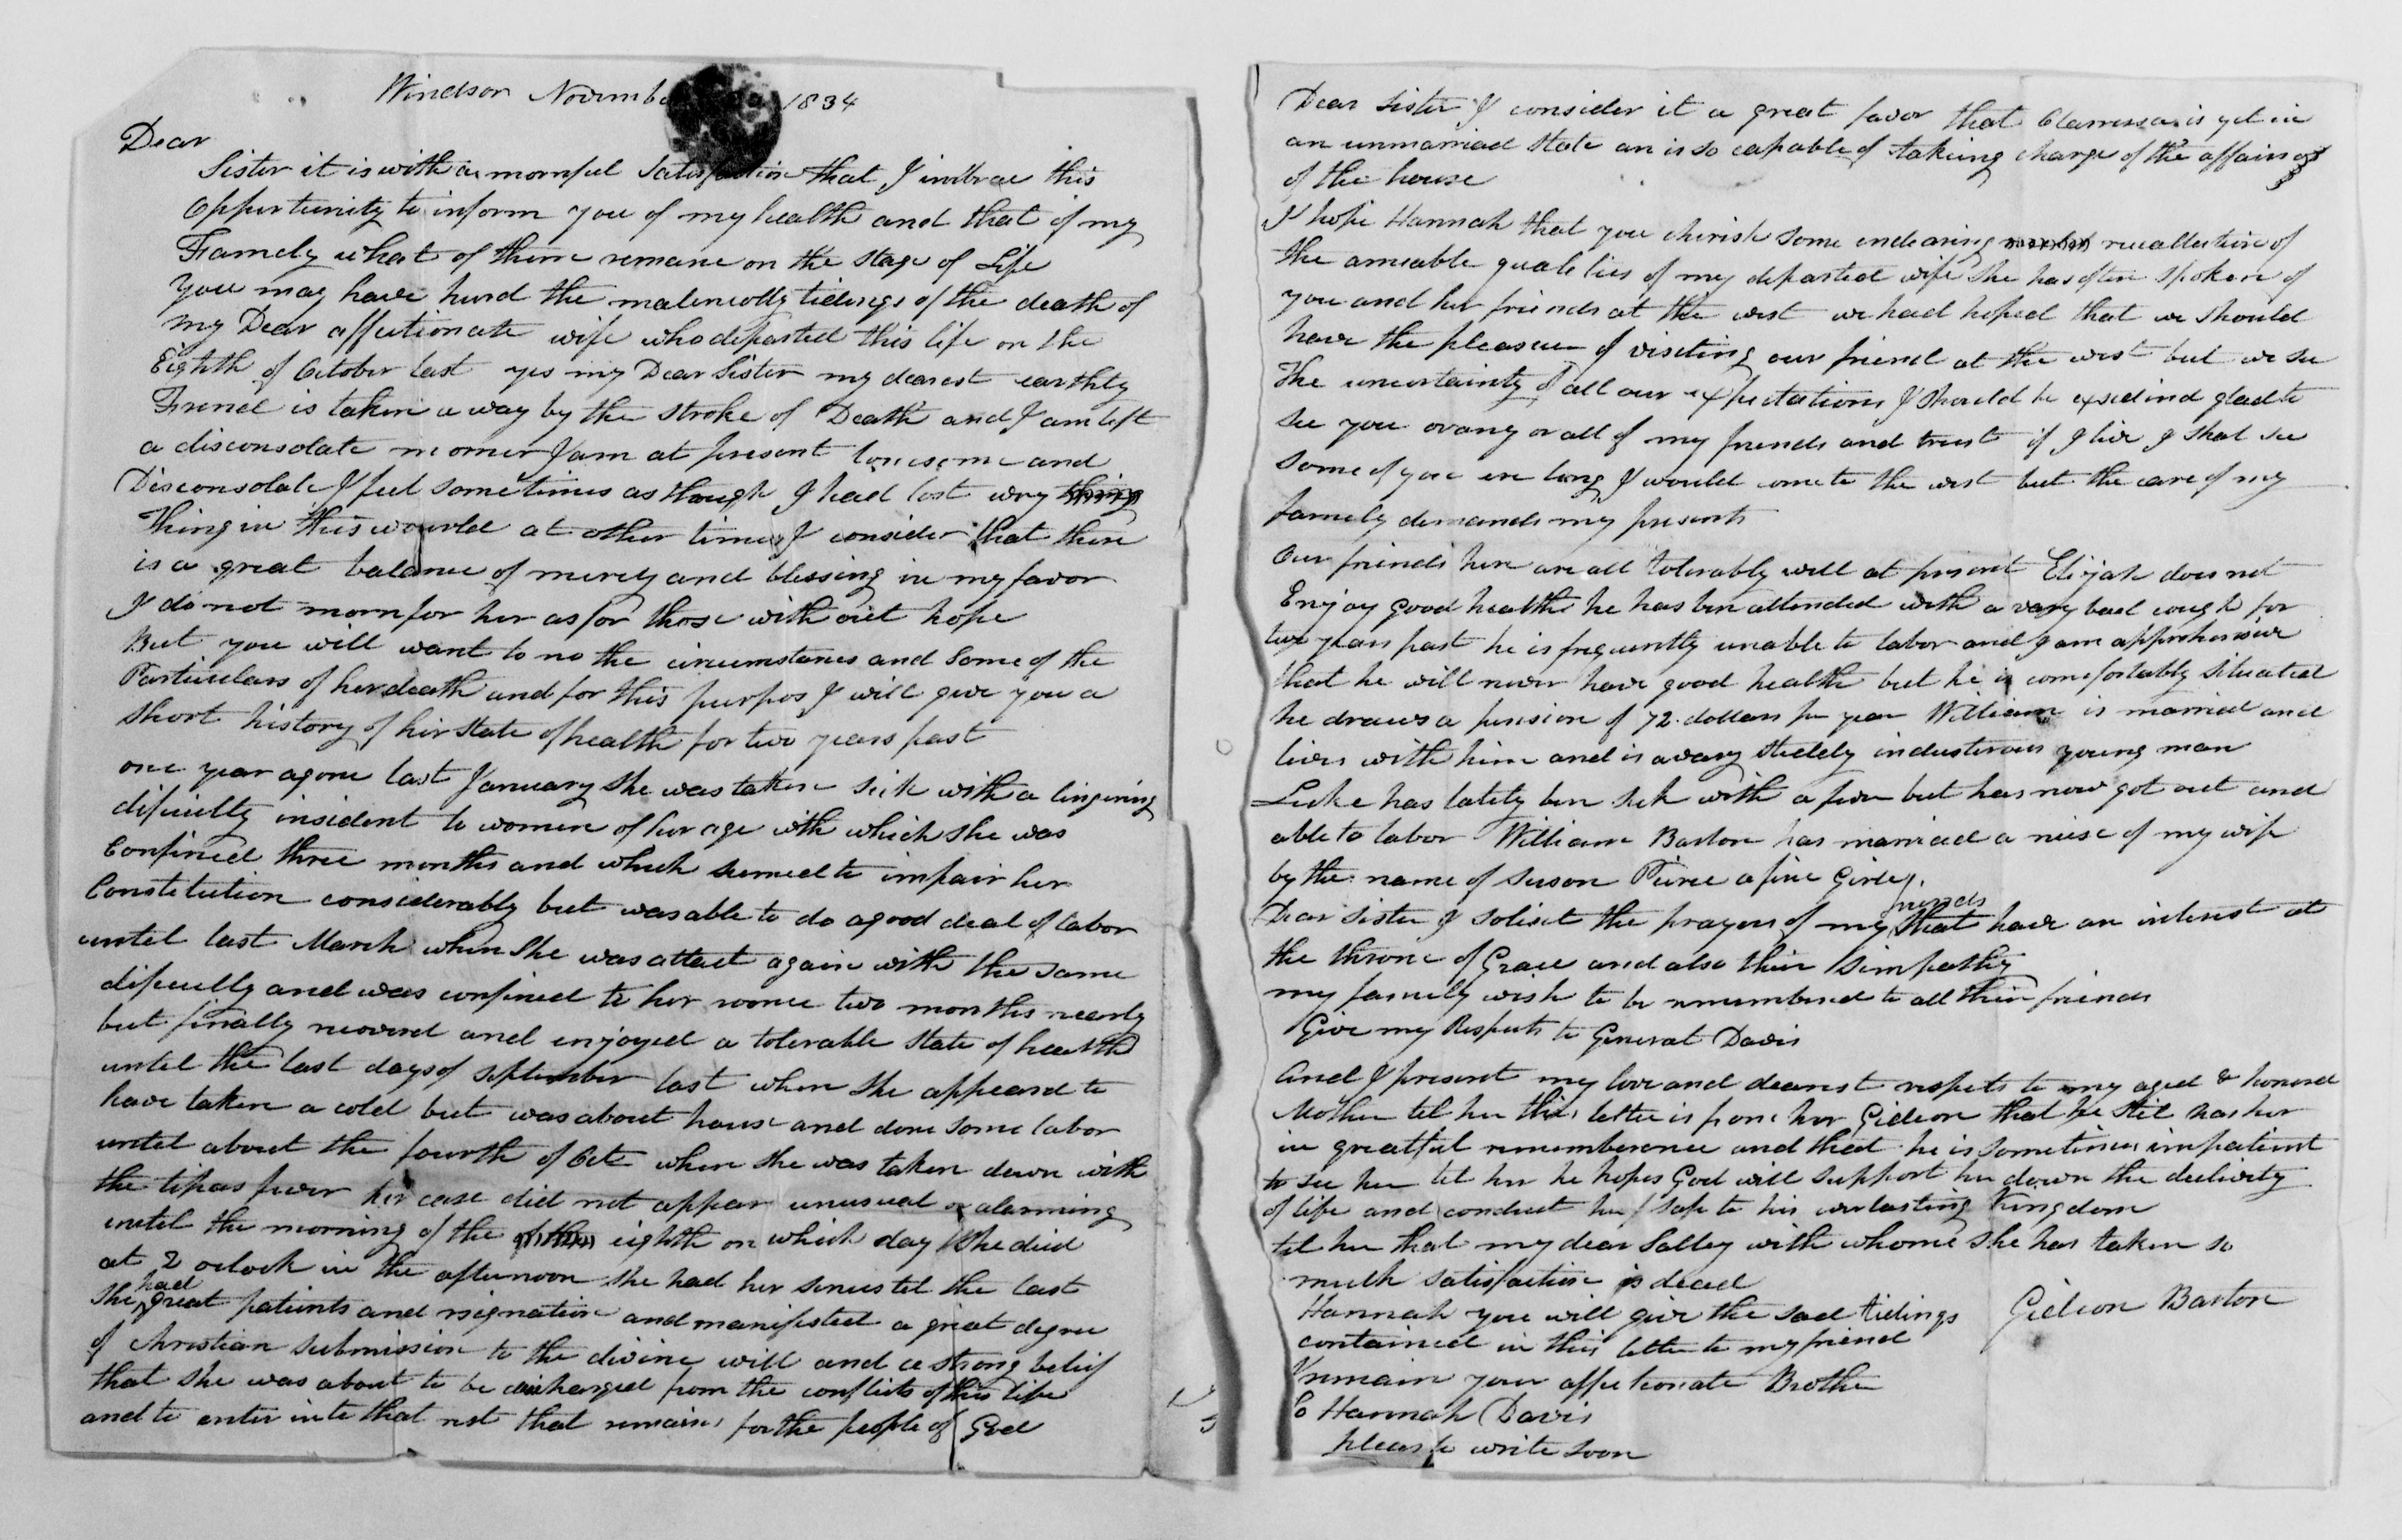 Windsor Novembe 1834
Dear
Sister it is with a mornful Satisfaction that I imbrace this
Oppertunity to inform you of my health and that of my
Famely what of them remane on the stage of Life
You may have hurd the malencolly tidings of the death of
my Dear affectionate wife who departed this life on the
Eighth of October last yes my Dear Sister my dearest earthly
Friend is taken away by the stroke of Death and I am left
a disconsolate morner I am at present lonesome and
Disconsolate I feel sometimes as though I had lost evry thing
Thing in this wourld at other times I consider that there
is a great balance of mercy and blessing in my favor
I do not morn for her as for those with out hope
But you will want to no the circumstances and Some of the
Particulars of her death and for this purpos I will give you a
Short history of hir State of health for two years past
one year agone last January she was taken sick with a lingering
dificulty insident to women of hur age with which She was
Confined three months and which seemed to impair her
Constitution considerably but was able to do a good deal of labor
until last March when She was attact again with the same
dificulty and was confined to her roome two months nearly
but finally recoverd and enjoyed a tolerable State of health
until the last days of September last when She appeard to
have taken a cold but was about house and done some labor
until about the fourth of Oct when she was taken down with
the tifas fever her case did not appear unusual or alarming
until the morning of the eighth on which day She died
at 2 oclock in the afternoon she had her senses til the last
She had great patients and resignation and manifested a great degree
of Christian Submission to the divine will and a strong belief
that She was about to be discharged from the conflicts of this life
and to enter into that rest that remains for the people of God
Dear Sister I consider it a great favor that Clarrissa is yet in
an unmarriad State an is so capable of takeing charge of the affairs of
of the house
I hope Hannah that you cherish Some endearing recallection of
the amiable qualities of my departed wife She has often Spoken of
you and her friends at the west we had hoped that we Should
have the pleasure of visiting our friend at the west but we see
The uncertainty of all our expectations I should be exsedind glad to
See you or any or all of my friends and trust if I live I shal see
Some of you ere long I would come to the west but the care of my
famely demands my presents
Our friends here are all tolerably well at present Elijah does not
Enjoy good health he has ben attended with a vary bad cough for
two years past he is frequently unable to labor and I am apprehensive
that he will never have good health but he is comfortably situated
he draws a pension of 72 dollars per year William is married and
lives with him and is a vary Stedely industerous young man
Luke has lately ben Sick with a fever but has now got out and
able to labor William Barton has married a niese of my wife
by the name of Suson Pierce a fine Girley.
Dear Sister I solisit the prayers of my friends that have an interest at
the throne of Grace and also their Simpathy
my family wish to be remembered to all their friends
Give my Respects to General Davis
And I present my love and dearest respects to my aged & honored
Mother tel her this letter is from her Gideon that he Stil has her
in greatful rememberence and that he is sometimes impatient
to see her tel her he hopes God will support her down the declivity
of life and conduct her safe to his everlasting Kingdom
tel her that my dear Salley with whome She has taken so
much satisfaction is dead
Hannah you will give the sad tidings
contained in this letter to my friend
Gideon Barton
I remain your affectionate Brother
To Hannah Davis
please to write soon